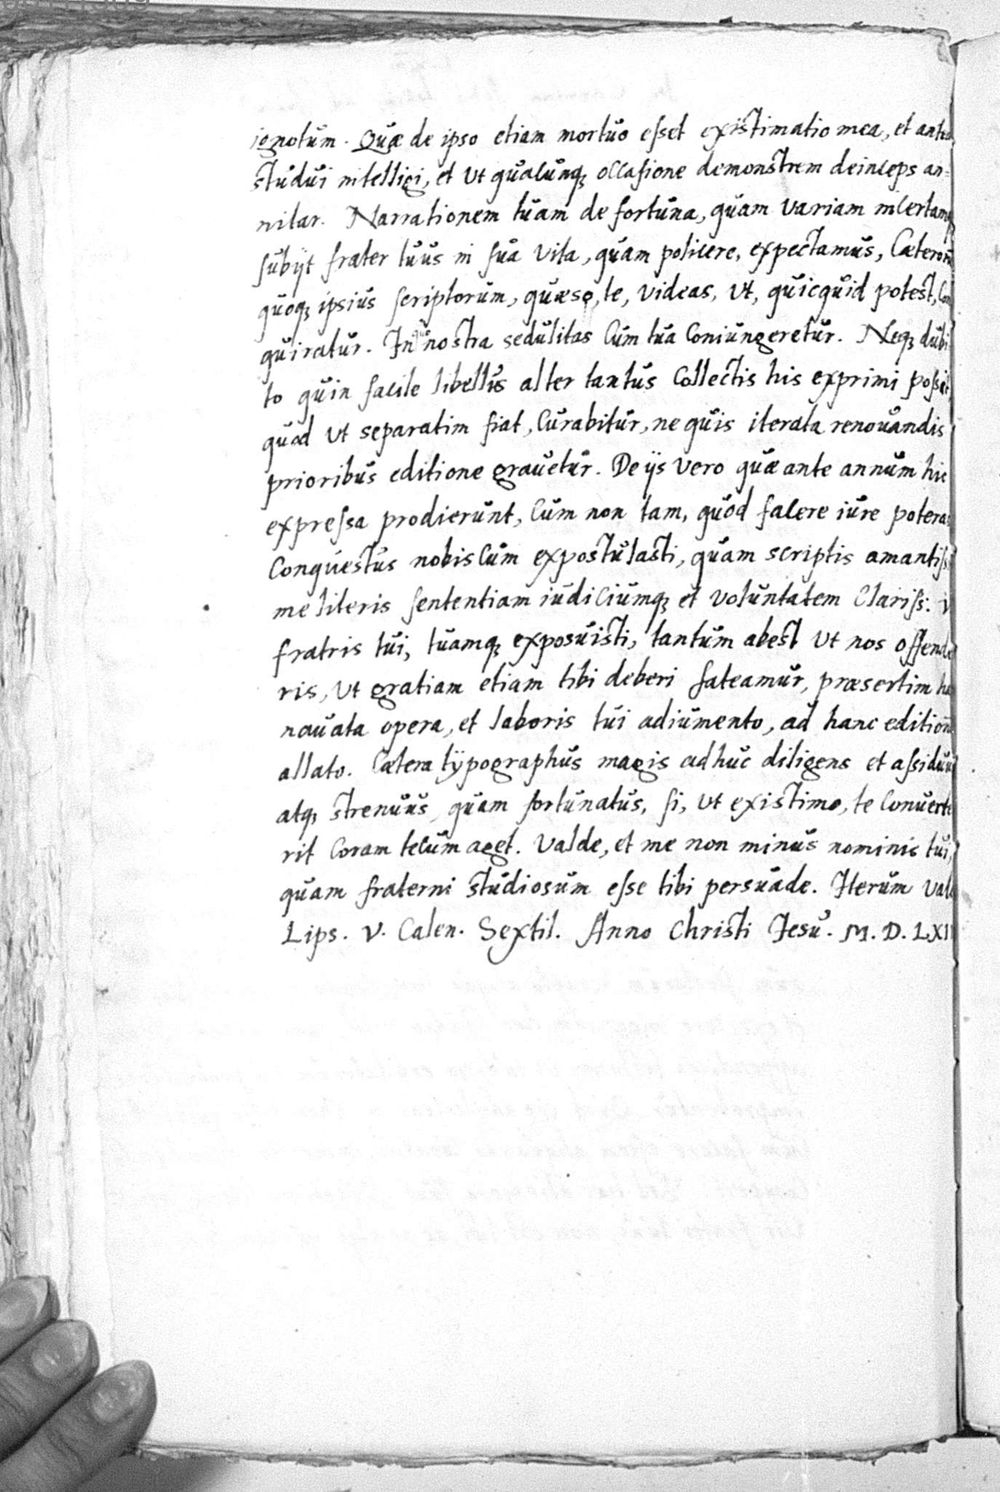 ignotum. Quæ de ipso etiam mortuo esset existimatio mea, et antea
studui intelligi, et ut qualunq; occasione demonstrem deinceps an-
nitar. Narrationem tuam de fortuna, quam variam incertamq;
subijt frater tuus in sua vita, quam polilere, expectamus, Cæterorū
quoq; ipsius scriptorum, quæso, te, videas, ut, quicquid potest, con
quiratur. In nostra sedulitas cum tua coniungeretur. Neq; dubi
to quin facile libellus alter tantus collectis his exprimi possit,
quod ut separatim fiat, curabitur, ne quis iterata renouandis
prioribus editione grauetur. De ijs vero quæ ante annum hic
expressa prodierunt, cum non tam, quod facere iure poteras
conquestus nobiscum expostulasti, quam scriptis amantiss
me literis sententiam iudiciumq; et voluntatem Clariss. V
fratris tui, tuamq; exposuisti, tantum abest ut nos offende
ris, ut gratiam etiam tibi deberi fateamur, præsertim hac
nauata opera, et laboris tui adiumento, ad hanc editionē
allato. Cætera typographus magis adhuc diligens et assiduus
atq; strenuus, quam fortunatus, si, ut existimo, te conuerte
rit coram tecum aget. Valde, et me non minus nominis tui,
quam fraterni studiosum esse tibi persuade. Iterum vale
Lips. V. Calen. Sextil. Anno Christi Iesu. M. D. LXII